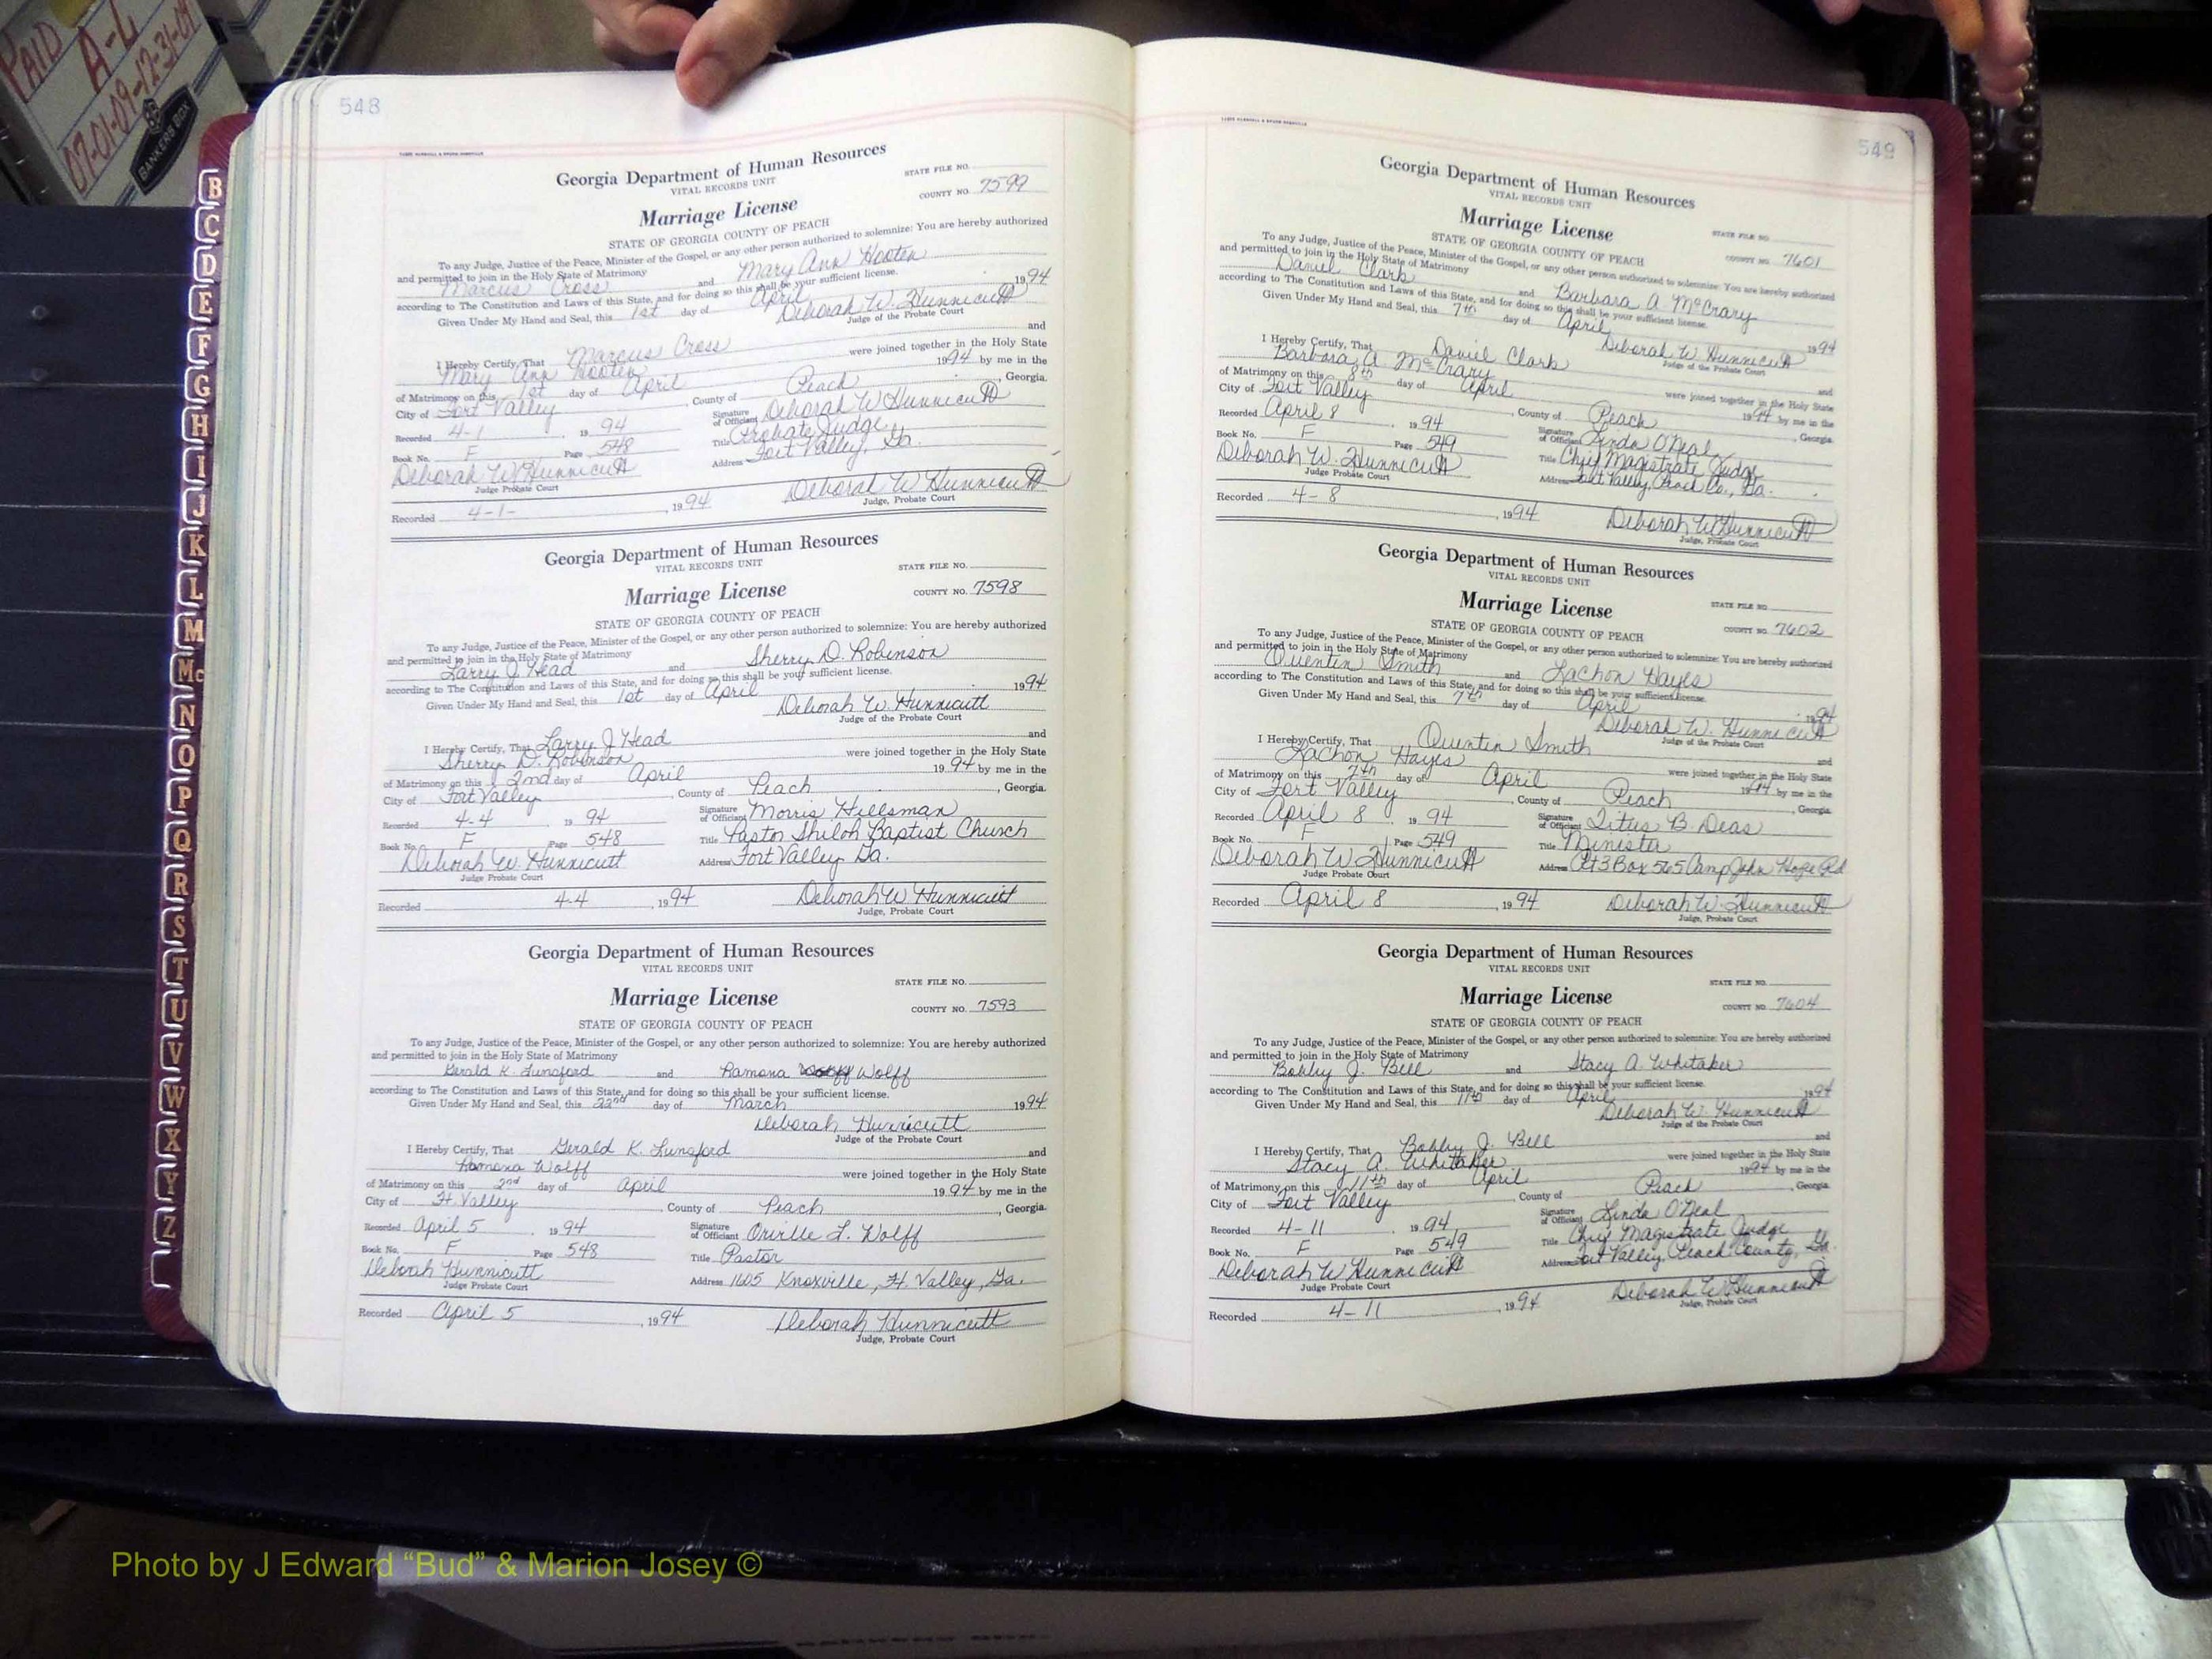 PAID
A-L
07-01-09-12-31-09
BANKERS BOX
B
C
D
E
F
G
H
I
J
K
L
M
Mc
N
O
P
Q
R
S
T
U
V
W
X
Y
Z
548
Georgia Department of Human Resources
VITAL RECORDS UNIT
STATE FILE NO.
Marriage License
COUNTY NO. 7599
STATE OF GEORGIA COUNTY OF PEACH
To any Judge, Justice of the Peace, Minister of the Gospel, or any other person authorized to solemnize: You are hereby authorized
and permitted to join in the Holy State of Matrimony
Marcus Cross and Mary Ann Hooten
according to The Constitution and Laws of this State, and for doing so this shall be your sufficient license.
Given Under My Hand and Seal, this 1st day of April 1994
Deborah W. Hunnicutt
Judge of the Probate Court
I Hereby Certify, That Marcus Cross and
Mary Ann Hooten were joined together in the Holy State
of Matrimony on this 1st day of April 1994 by me in the
City of Fort Valley, County of Peach, Georgia.
Recorded 4-1, 1994 Signature of Officiant Deborah W Hunnicutt
Book No. F Page 548 Title Probate Judge
Deborah W Hunnicutt Address Fort Valley, Ga.
Judge Probate Court
Recorded 4-1-, 1994 Deborah W Hunnicutt
Judge, Probate Court
Georgia Department of Human Resources
VITAL RECORDS UNIT
STATE FILE NO.
Marriage License
COUNTY NO. 7598
STATE OF GEORGIA COUNTY OF PEACH
To any Judge, Justice of the Peace, Minister of the Gospel, or any other person authorized to solemnize: You are hereby authorized
and permitted to join in the Holy State of Matrimony
Larry J Head and Sherry D. Robinson
according to The Constitution and Laws of this State, and for doing so this shall be your sufficient license.
Given Under My Hand and Seal, this 1st day of April 1994
Deborah W. Hunnicutt
Judge of the Probate Court
I Hereby Certify, That Larry J Head and
Sherry D. Robinson were joined together in the Holy State
of Matrimony on this 2nd day of April 1994 by me in the
City of Fort Valley, County of Peach, Georgia.
Recorded 4-4, 1994 Signature of Officiant Morris Hillsman
Book No. F Page 548 Title Pastor Shiloh Baptist Church
Deborah W. Hunnicutt Address Fort Valley Ga.
Judge Probate Court
Recorded 4-4, 1994 Deborah W Hunnicutt
Judge, Probate Court
Georgia Department of Human Resources
VITAL RECORDS UNIT
STATE FILE NO.
Marriage License
COUNTY NO. 7593
STATE OF GEORGIA COUNTY OF PEACH
To any Judge, Justice of the Peace, Minister of the Gospel, or any other person authorized to solemnize: You are hereby authorized
and permitted to join in the Holy State of Matrimony
Gerald K. Lunsford and Ramona Wolff
according to The Constitution and Laws of this State, and for doing so this shall be your sufficient license.
Given Under My Hand and Seal, this 22nd day of March 1994
Deborah Hunnicutt
Judge of the Probate Court
I Hereby Certify, That Gerald K. Lunsford and
Ramona Wolff were joined together in the Holy State
of Matrimony on this 2nd day of April 1994 by me in the
City of Ft. Valley, County of Peach, Georgia.
Recorded April 5, 1994 Signature of Officiant Orville L. Wolff
Book No. F Page 548 Title Pastor
Deborah Hunnicutt Address 1605 Knoxville, Ft. Valley, Ga.
Judge Probate Court
Recorded April 5, 1994 Deborah Hunnicutt
Judge, Probate Court
549
Georgia Department of Human Resources
VITAL RECORDS UNIT
Marriage License
STATE FILE NO.
STATE OF GEORGIA COUNTY OF PEACH
COUNTY NO. 7601
To any Judge, Justice of the Peace, Minister of the Gospel, or any other person authorized to solemnize: You are hereby authorized
and permitted to join in the Holy State of Matrimony
Daniel Clark and Barbara A. McCrary
according to The Constitution and Laws of this State, and for doing so this shall be your sufficient license.
Given Under My Hand and Seal, this 7th day of April 1994
Deborah W. Hunnicutt
Judge of the Probate Court
I Hereby Certify, That Daniel Clark and
Barbara A McCrary were joined together in the Holy State
of Matrimony on this 8th day of April 1994 by me in the
City of Fort Valley, County of Peach, Georgia.
Recorded April 8, 1994 Signature of Officiant Linda O'Neal
Book No. F Page 549 Title Chief Magistrate Judge
Deborah W. Hunnicutt Address Fort Valley, Peach Co., Ga.
Judge Probate Court
Recorded 4-8, 1994 Deborah W Hunnicutt
Judge, Probate Court
Georgia Department of Human Resources
VITAL RECORDS UNIT
Marriage License
STATE FILE NO.
STATE OF GEORGIA COUNTY OF PEACH
COUNTY NO. 7602
To any Judge, Justice of the Peace, Minister of the Gospel, or any other person authorized to solemnize: You are hereby authorized
and permitted to join in the Holy State of Matrimony
Quentin Smith and Lachon Hayes
according to The Constitution and Laws of this State, and for doing so this shall be your sufficient license.
Given Under My Hand and Seal, this 7th day of April 1994
Deborah W. Hunnicutt
Judge of the Probate Court
I Hereby Certify, That Quentin Smith and
Lachon Hayes were joined together in the Holy State
of Matrimony on this 7th day of April 1994 by me in the
City of Fort Valley, County of Peach, Georgia.
Recorded April 8, 1994 Signature of Officiant Titus B. Deas
Book No. F Page 549 Title Minister
Deborah W Hunnicutt Address Rt 3 Box 565 Camp John Hope Rd
Judge Probate Court
Recorded April 8, 1994 Deborah W. Hunnicutt
Judge, Probate Court
Georgia Department of Human Resources
VITAL RECORDS UNIT
STATE FILE NO.
Marriage License
COUNTY NO. 7604
STATE OF GEORGIA COUNTY OF PEACH
To any Judge, Justice of the Peace, Minister of the Gospel, or any other person authorized to solemnize: You are hereby authorized
and permitted to join in the Holy State of Matrimony
Bobby J. Bell and Stacy A. Whitaker
according to The Constitution and Laws of this State, and for doing so this shall be your sufficient license.
Given Under My Hand and Seal, this 11th day of April 1994
Deborah W. Hunnicutt
Judge of the Probate Court
I Hereby Certify, That Bobby J. Bell and
Stacy A. Whitaker were joined together in the Holy State
of Matrimony on this 11th day of April 1994 by me in the
City of Fort Valley, County of Peach, Georgia.
Recorded 4-11, 1994 Signature of Officiant Linda O'Neal
Book No. F Page 549 Title Chief Magistrate Judge
Deborah W Hunnicutt Address Fort Valley, Peach County, Ga.
Judge Probate Court
Recorded 4-11, 1994 Deborah W Hunnicutt
Judge, Probate Court
Photo by J Edward “Bud” & Marion Josey ©